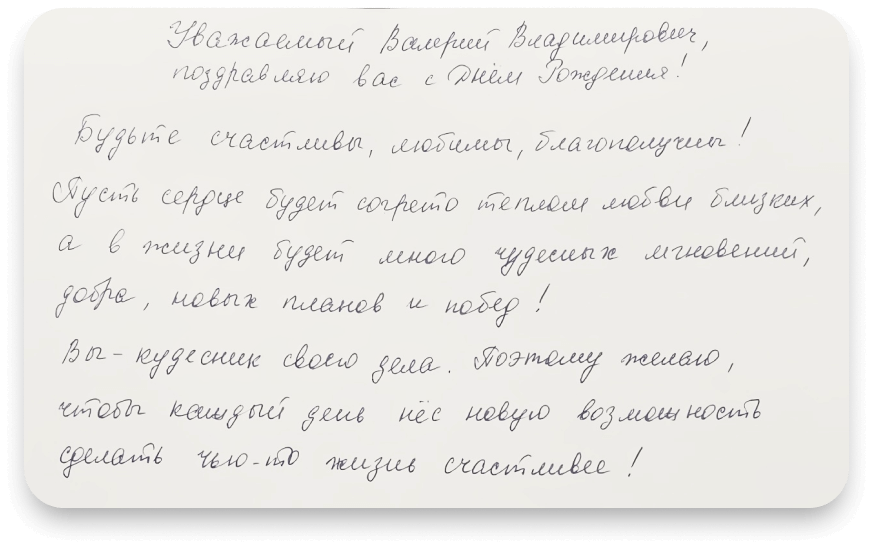 Уважаемый Валерий Владимирович,
поздравляю вас с Днём Рождения!
Будьте счастливы, любимы, благополучны!
Пусть сердце будет согрето теплом любви близких,
а в жизни будет много чудесных мгновений,
добра, новых планов и побед!
Вы - кудесник своего дела. Поэтому желаю,
чтобы каждый день нёс новую возможность
сделать чью-то жизнь счастливее!